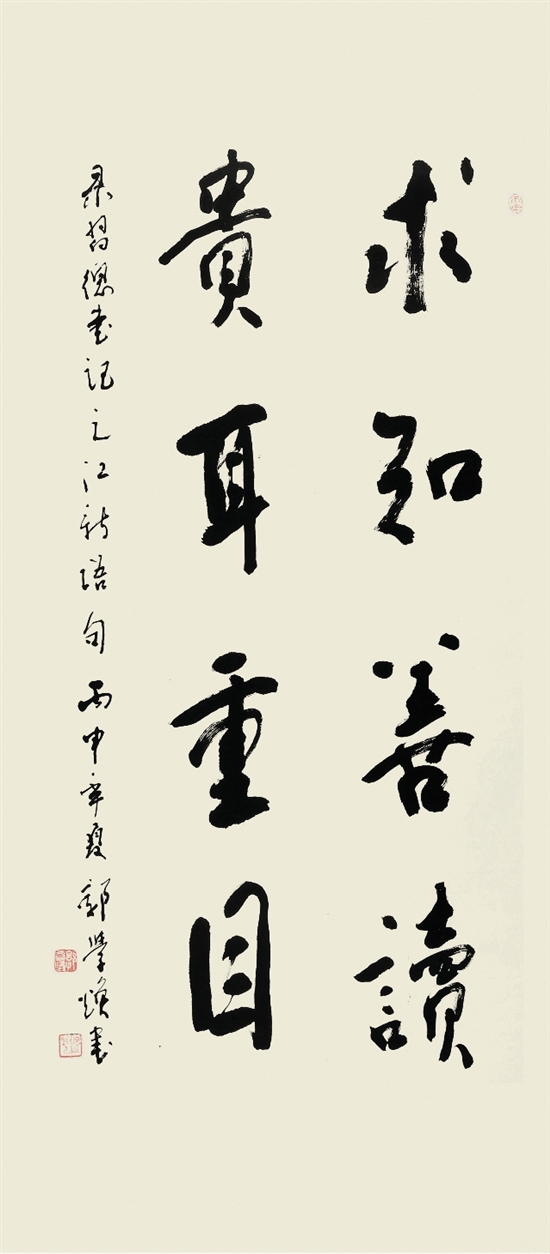 求知善讀
貴耳重目
录習總書記之江新語句 丙申年夏 郭學煥書